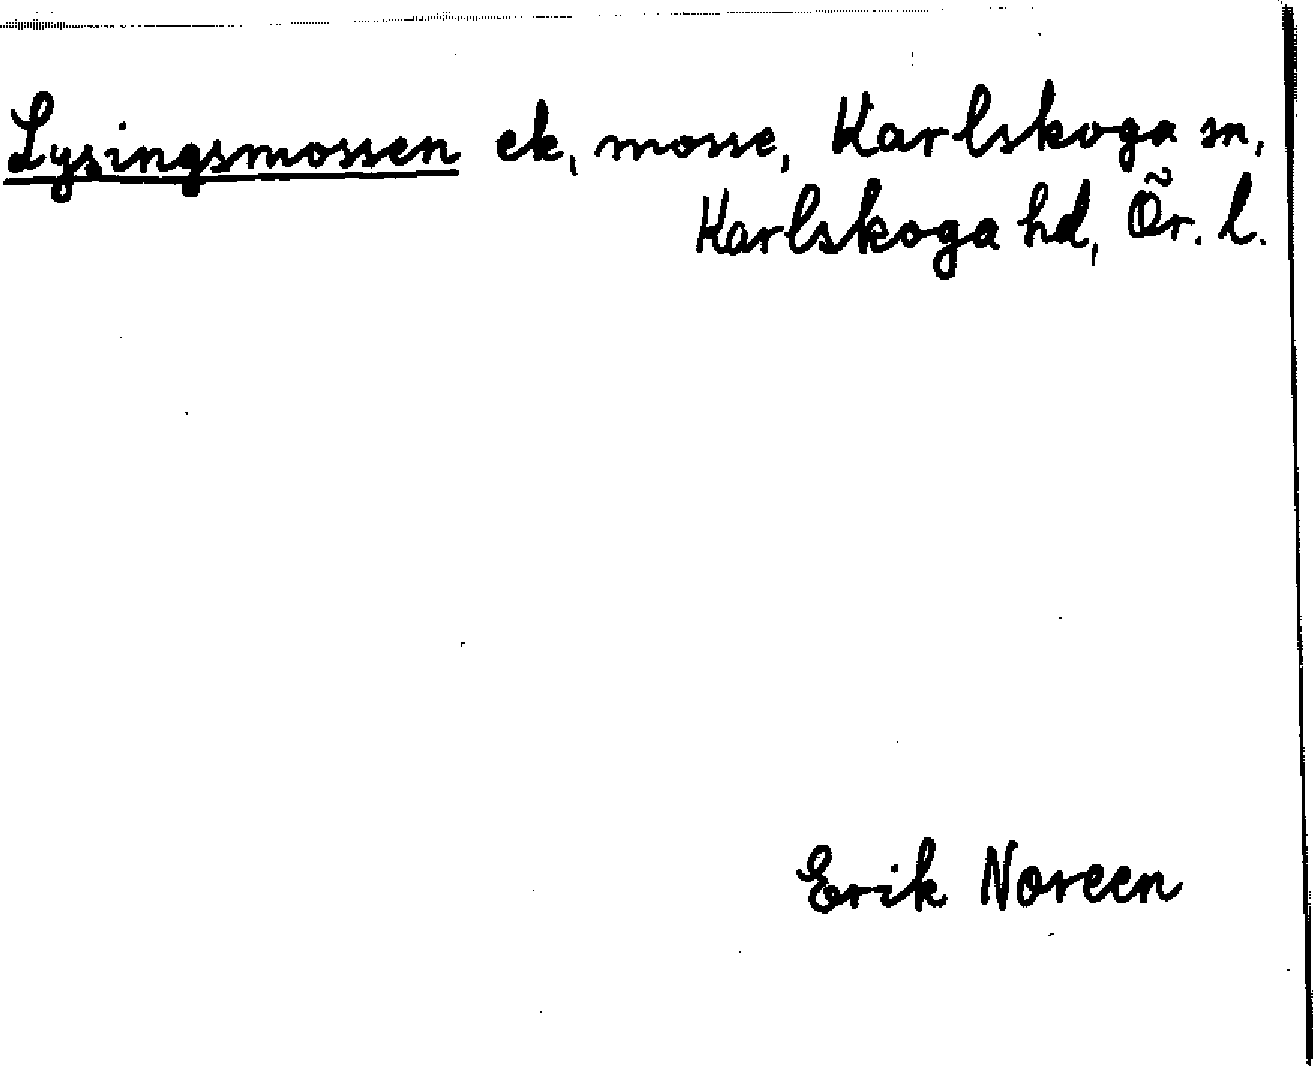 Lysingsmossen ek, mosse, Karlskoga sn,
Karlskoga hd, Ör. l.
Erik Noreen